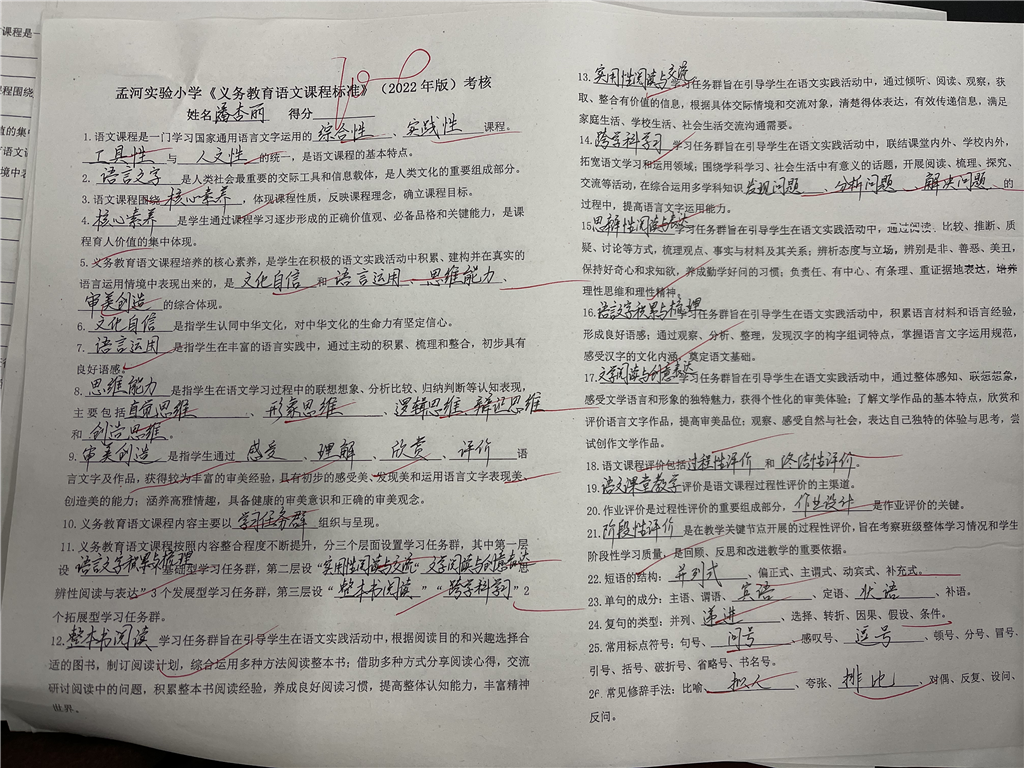 孟河实验小学《义务教育语文课程标准》（2022年版）考核
姓名 潘杏丽 得分
1.语文课程是一门学习国家通用语言文字运用的 综合性 、 实践性 课程。
工具性 与 人文性 的统一，是语文课程的基本特点。
2. 语言文字 是人类社会最重要的交际工具和信息载体，是人类文化的重要组成部分。
3.语文课程围绕 核心素养 ，体现课程性质，反映课程理念，确立课程目标。
4. 核心素养 是学生通过课程学习逐步形成的正确价值观、必备品格和关键能力，是课
程育人价值的集中体现。
5.义务教育语文课程培养的核心素养，是学生在积极的语文实践活动中积累、建构并在真实的
语言运用情境中表现出来的，是 文化自信 和 语言运用 、 思维能力 、
审美创造 的综合体现。
6. 文化自信 是指学生认同中华文化，对中华文化的生命力有坚定信心。
7. 语言运用 是指学生在丰富的语言实践中，通过主动的积累、梳理和整合，初步具有
良好语感；
8. 思维能力 是指学生在语文学习过程中的联想想象、分析比较、归纳判断等认知表现，
主要包括 直觉思维 、 形象思维 、 逻辑思维 、 辩证思维
和 创造思维 。
9. 审美创造 是指学生通过 感受 、 理解 、 欣赏 、 评价 语
言文字及作品，获得较为丰富的审美经验，具有初步的感受美、发现美和运用语言文字表现美、
创造美的能力；涵养高雅情趣，具备健康的审美意识和正确的审美观念。
10.义务教育语文课程内容主要以 学习任务群 组织与呈现。
11.义务教育语文课程按照内容整合程度不断提升，分三个层面设置学习任务群，其中第一层
设“ 语言文字积累与梳理 ”基础型学习任务群，第二层设“ 实用性阅读与交流 ”“ 文学阅读与创意表达 ”“思
辨性阅读与表达”3个发展型学习任务群，第三层设“ 整本书阅读 ”“ 跨学科学习 ”2
个拓展型学习任务群。
12. 整本书阅读 学习任务群旨在引导学生在语文实践活动中，根据阅读目的和兴趣选择合
适的图书，制订阅读计划，综合运用多种方法阅读整本书；借助多种方式分享阅读心得，交流
研讨阅读中的问题，积累整本书阅读经验，养成良好阅读习惯，提高整体认知能力，丰富精神
世界。
13. 实用性阅读与交流 学习任务群旨在引导学生在语文实践活动中，通过倾听、阅读、观察，获
取、整合有价值的信息，根据具体交际情境和交流对象，清楚得体表达，有效传递信息，满足
家庭生活、学校生活、社会生活交流沟通需要。
14. 跨学科学习 学习任务群旨在引导学生在语文实践活动中，联结课堂内外、学校内外，
拓宽语文学习和运用领域；围绕学科学习、社会生活中有意义的话题，开展阅读、梳理、探究、
交流等活动，在综合运用多学科知识 发现问题 、 分析问题 、 解决问题 的
过程中，提高语言文字运用能力。
15. 思辨性阅读与表达 学习任务群旨在引导学生在语文实践活动中，通过阅读、比较、推断、质
疑、讨论等方式，梳理观点、事实与材料及其关系；辨析态度与立场，辨别是非、善恶、美丑，
保持好奇心和求知欲，养成勤学好问的习惯；负责任、有中心、有条理、重证据地表达，培养
理性思维和理性精神。
16. 语言文字积累与梳理 学习任务群旨在引导学生在语文实践活动中，积累语言材料和语言经验，
形成良好语感；通过观察、分析、整理，发现汉字的构字组词特点，掌握语言文字运用规范，
感受汉字的文化内涵，奠定语文基础。
17. 文学阅读与创意表达 学习任务群旨在引导学生在语文实践活动中，通过整体感知、联想想象，
感受文学语言和形象的独特魅力，获得个性化的审美体验；了解文学作品的基本特点，欣赏和
评价语言文字作品，提高审美品位；观察、感受自然与社会，表达自己独特的体验与思考，尝
试创作文学作品。
18.语文课程评价包括 过程性评价 和 终结性评价 。
19. 语文课堂教学 评价是语文课程过程性评价的主渠道。
20.作业评价是过程性评价的重要组成部分， 作业设计 是作业评价的关键。
21. 阶段性评价 是在教学关键节点开展的过程性评价，旨在考察班级整体学习情况和学生
阶段性学习质量，是回顾、反思和改进教学的重要依据。
22.短语的结构： 并列式 、偏正式、主谓式、动宾式、补充式。
23.单句的成分：主语、谓语、 宾语 、定语、 状语 、补语。
24.复句的类型：并列、 递进 、选择、转折、因果、假设、条件。
25.常用标点符号：句号、 问号 、感叹号、 逗号 、顿号、分号、冒号、
引号、括号、破折号、省略号、书名号。
26.常见修辞手法：比喻、 拟人 、夸张、 排比 、对偶、反复、设问、
反问。